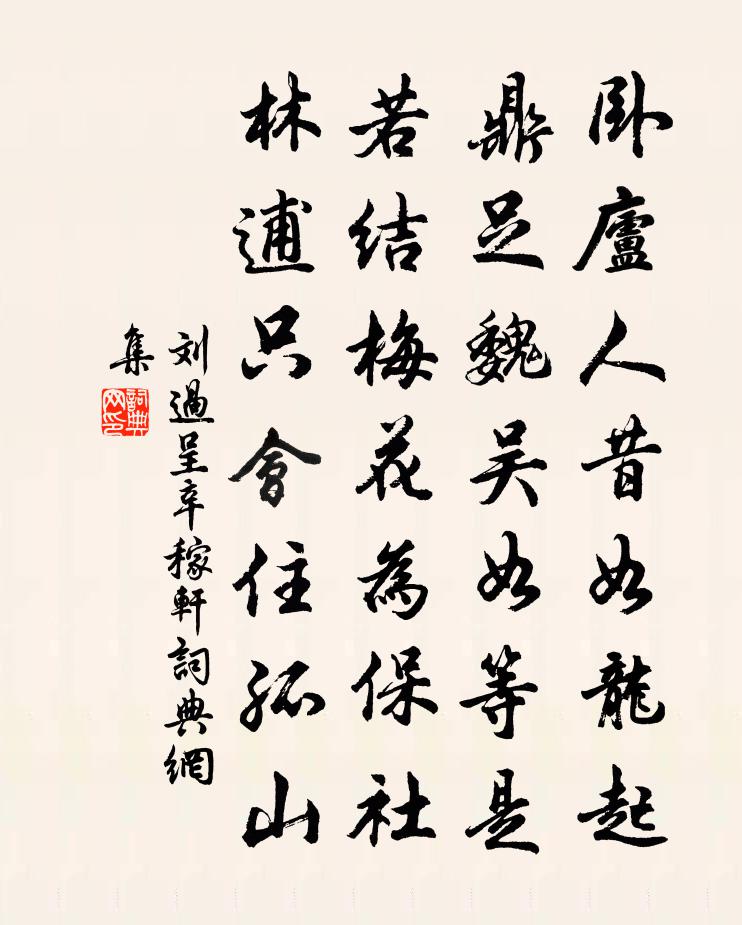 卧廬人昔如龍起
鼎足魏吴如等是
若结梅花為保社
林逋只會住孤山
刘過呈辛稼軒詞典網
集
詞典
网印